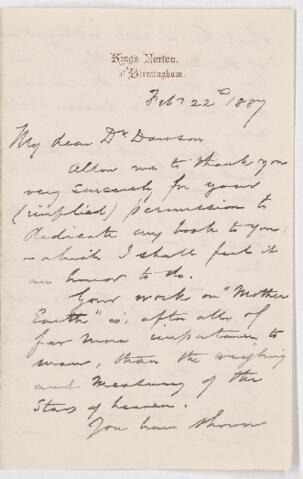 King's Norton,
Nr Birmingham.
Feby 22d 1887
My dear Dr Dawson
Allow me to thank you
very sincerely for your
(implied) permission to
dedicate my book to you,
- which I shall feel it
an honor to do.
Your work on "Mother
Earth" is, after all, of
far more importance to
man, than the weighing
and measuring of the
Stars of heaven.
You have shown